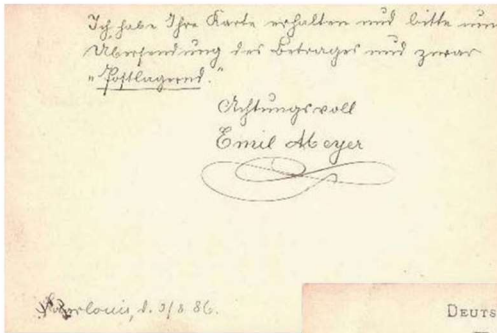 Ich habe Ihre Karte erhalten und bitte um
Übersendung des Betrages und zwar
"Postlagernd."
Achtungsvoll
Emil Meyer
Saarlouis, d. 3/8 86.
DEUTS